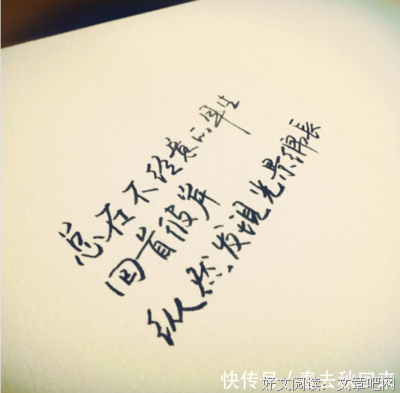 总在不经意的年生
回首彼岸
纵然发现光景绵长
快传号 / 春去秋回来
好文阅读：文章吧网